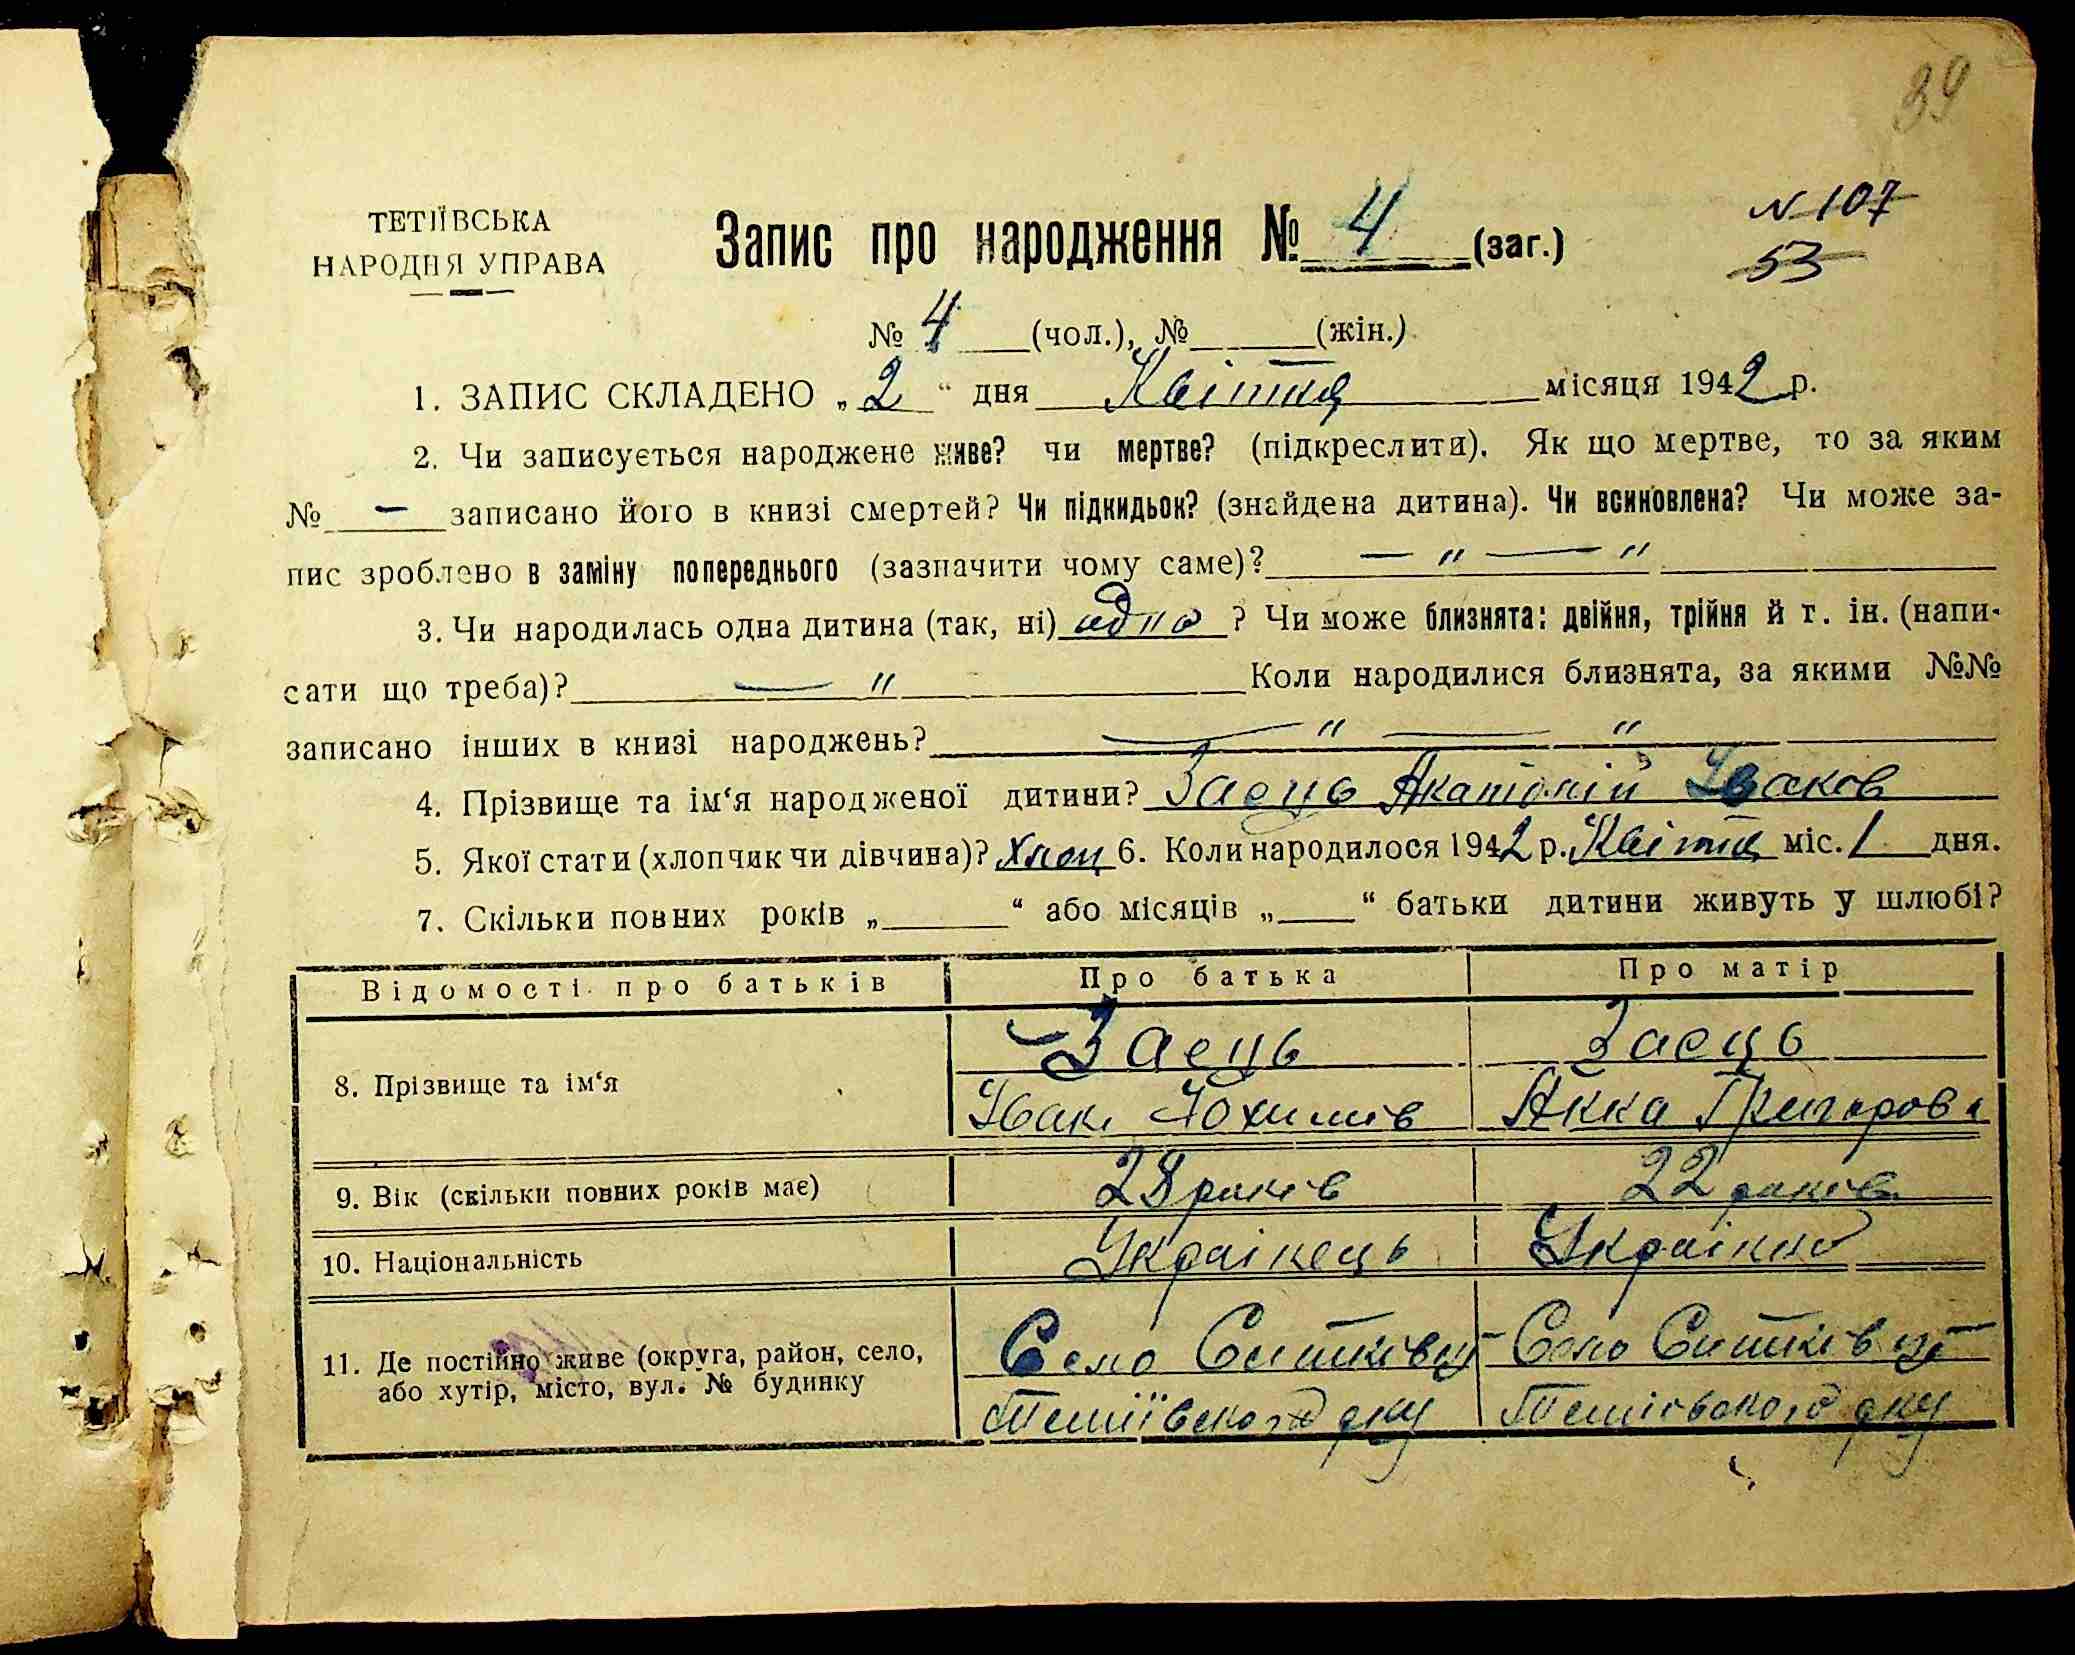 39
ТЕТІЇВСЬКА
НАРОДНЯ УПРАВА
Запис про народження № 4 (заг.)
N 107
53
№ 4 (чол.), № (жін.)
1. ЗАПИС СКЛАДЕНО „2“ дня Квітня місяця 1942 р.
2. Чи записується народжене живе? чи мертве? (підкреслити). Як що мертве, то за яким
№ — записано його в книзі смертей? Чи підкидьок? (знайдена дитина). Чи всиновлена? Чи може за-
пис зроблено в заміну попереднього (зазначити чому саме)? — " — "
3. Чи народилась одна дитина (так, ні) одна ? Чи може близнята: двійня, трійня й т. ін. (напи-
сати що треба)? — " Коли народилися близнята, за якими №№
записано інших в книзі народжень? — " — "
4. Прізвище та ім‘я народженої дитини? Заєць Анатолій Іванов
5. Якої стати (хлопчик чи дівчина)? хлоп 6. Коли народилося 1942 р. Квітня міс. 1 дня.
7. Скільки повних років „ “ або місяців „ “ батьки дитини живуть у шлюбі?
Відомості про батьків Про батька Про матір
Заєць Заєць
8. Прізвище та ім‘я
Іван Йохимів Анна Григорова
9. Вік (скільки повних років має) 28 років 22 років
10. Національність Українець Українка
11. Де постійно живе (округа, район, село, Село Ситківці Село Ситківці
або хутір, місто, вул. № будинку Тетіївського р-ну Тетієвского р-ну